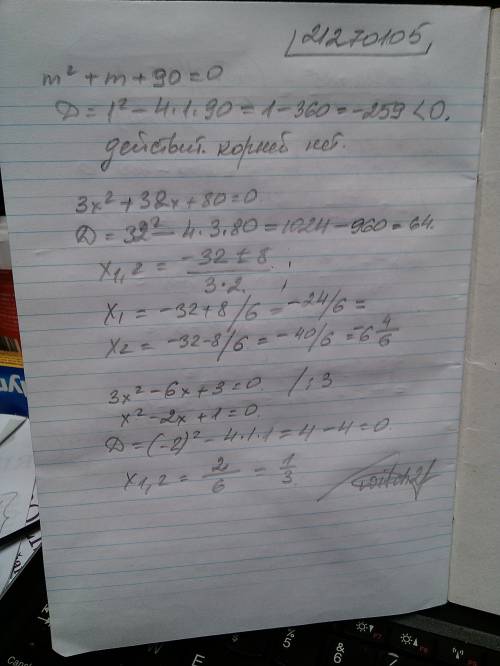 21270105
m² + m + 90 = 0
D = 1² - 4·1·90 = 1 - 360 = -259 < 0.
действит. корней нет.
3x² + 32x + 80 = 0
D = 32² - 4·3·80 = 1024 - 960 = 64.
x₁,₂ = (-32 ± 8)/(3·2) ;
x₁ = -32+8/6 = -24/6 =
x₂ = -32-8/6 = -40/6 = -6 4/6
3x² - 6x + 3 = 0. /:3
x² - 2x + 1 = 0.
D = (-2)² - 4·1·1 = 4 - 4 = 0.
x₁,₂ = 2/6 = 1/3